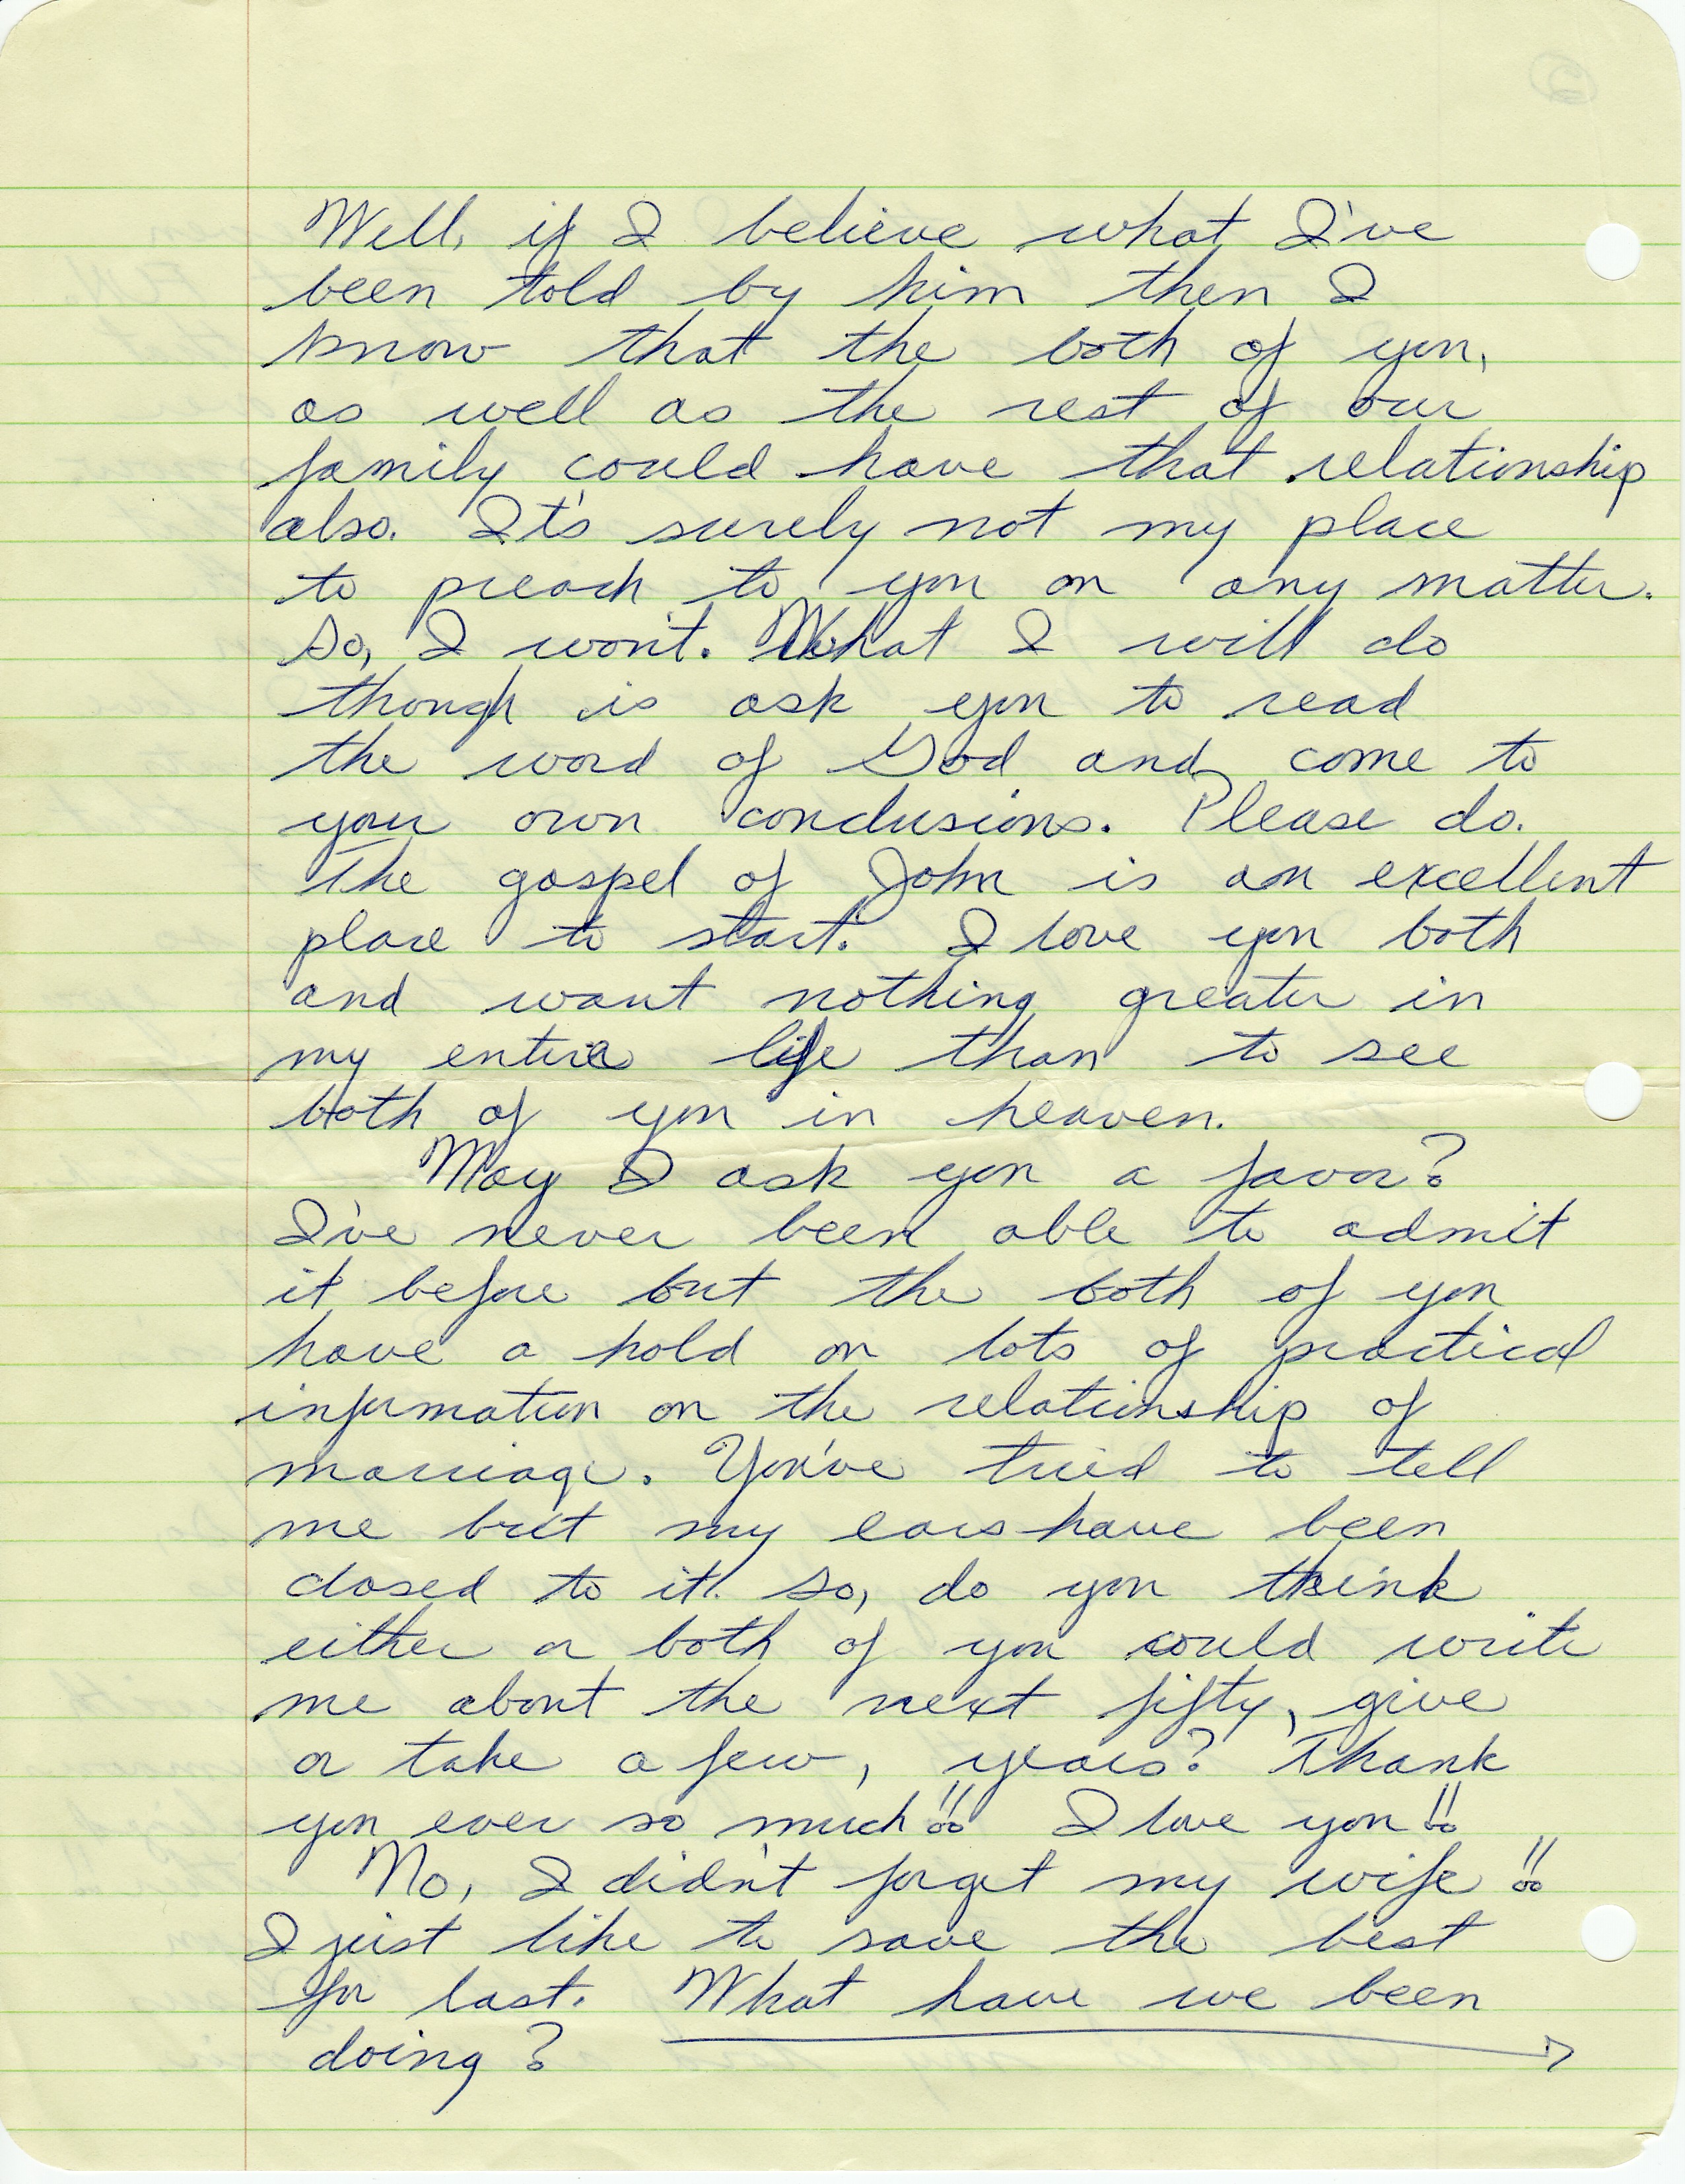 Well, if I believe what I've
been told by him then I
know that the both of you,
as well as the rest of our
family could have that relationship
also. It's surely not my place
to preach to you on any matter.
So, I won't. What I will do
though is ask you to read
the word of God and come to
your own conclusions. Please do.
The gospel of John is an excellent
place to start. I love you both
and want nothing greater in
my entire life than to see
both of you in heaven.
May I ask you a favor?
I've never been able to admit
it before but the both of you
have a hold on lots of practical
information on the relationship of
marriage. You've tried to tell
me but my ears have been
closed to it. So, do you think
either or both of you could write
me about the next fifty, give
or take a few, years? Thank
you ever so much!! I love you!!
No, I didn't forget my wife!!
I just like to save the best
for last. What have we been
doing?